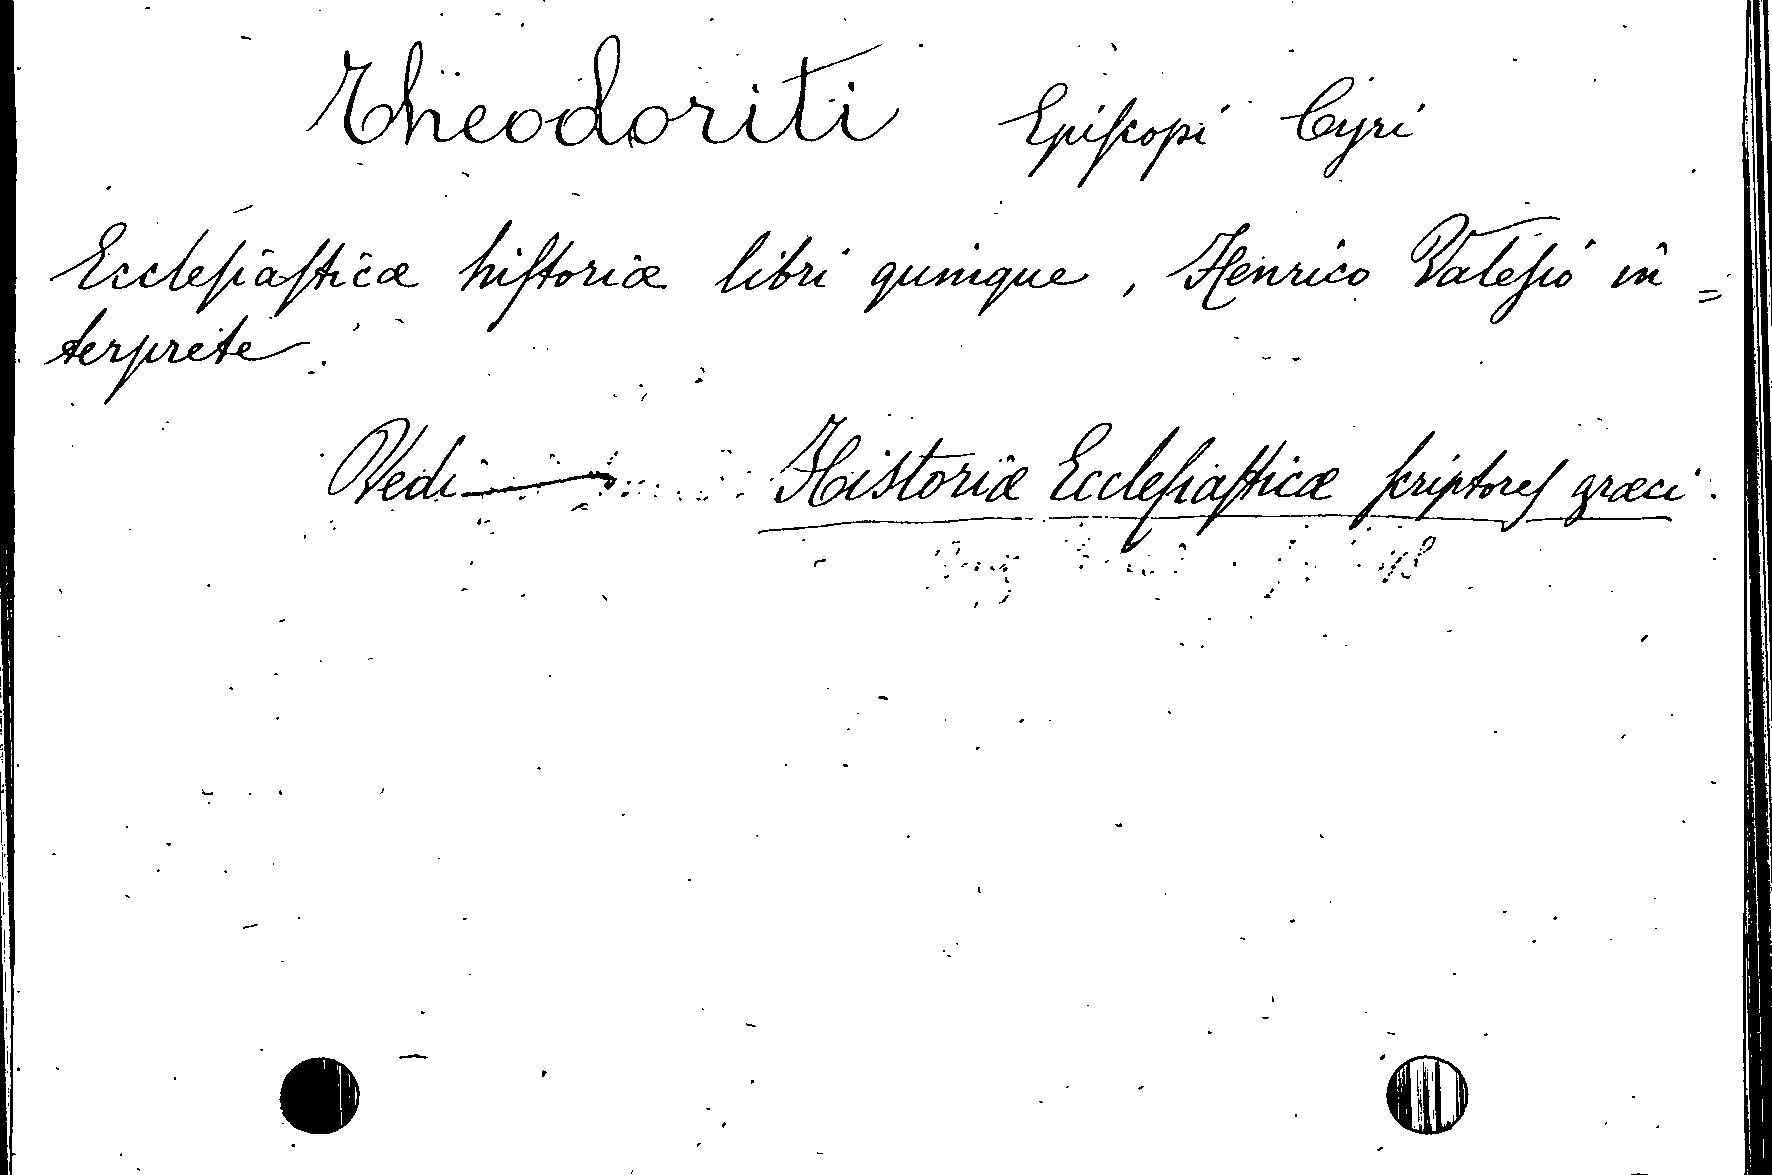 Theodoriti Epiſcopi Cyri
Eccleſiaſticæ hiſtoriæ libri quinque, Henrico Valeſio in=
terprete.
Vedi — Historiæ Eccleſiaſticæ ſcriptoreſ græci.